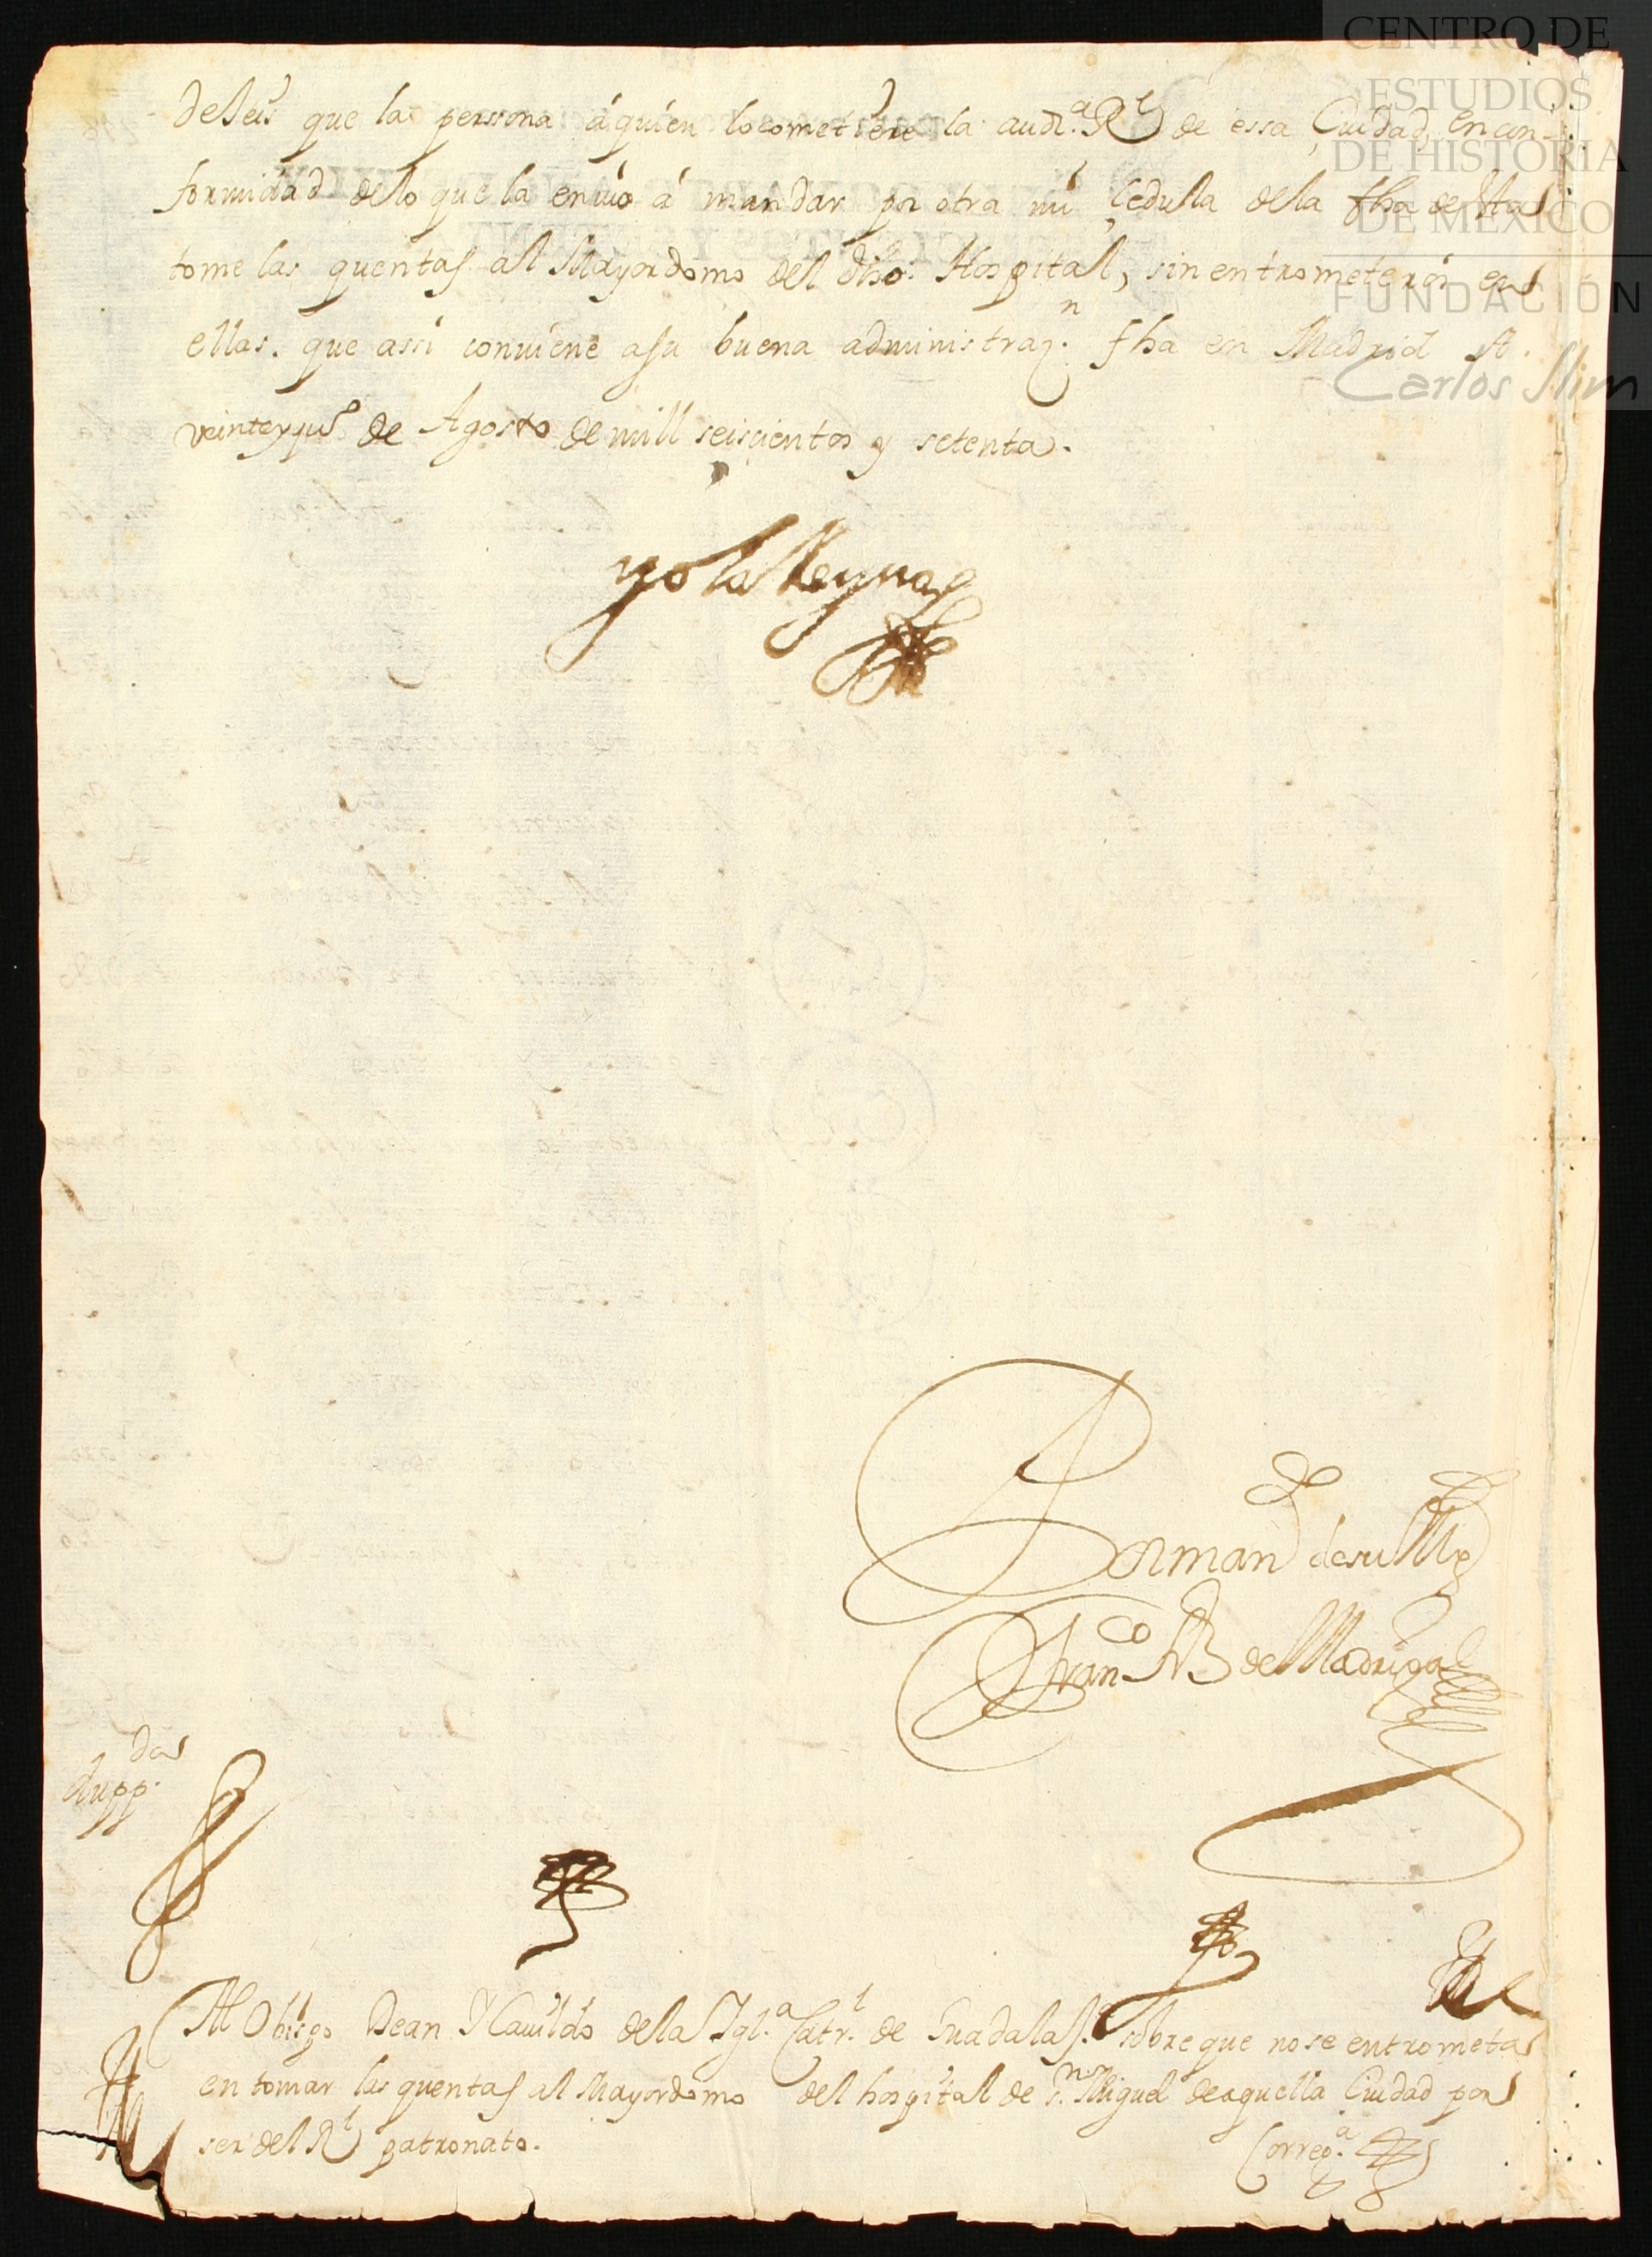 CENTRO DE
ESTUDIOS
DE HISTORIA
DE MÉXICO
FUNDACIÓN
Carlos Slim
deseis que la persona á quien lo cometiere la audi.ª R.l de essa Ciudad en con-
formidad de lo que la envio á mandar por otra mi Cedula de la fha de sta
tome las quentas al Mayordomo del dho. Hospital, sin entrometeros en
ellas. que assi conviene a su buena administraz.n fha en Madrid A.
veinte y de Agosto de mill seiscientos y setenta.
yo la Reyna
Por mand.do de su Mg.d
Fran.co de Madrigal
dupp.das
Al Obispo Dean Y Cavildo de la Igl.ª Catr.l de Guadalaj.ª sobre que no se entrometa
en tomar las quentas al Mayordomo del hospital de s.n Miguel de aquella Ciudad por
ser del R.l patronato.
Correg.ª